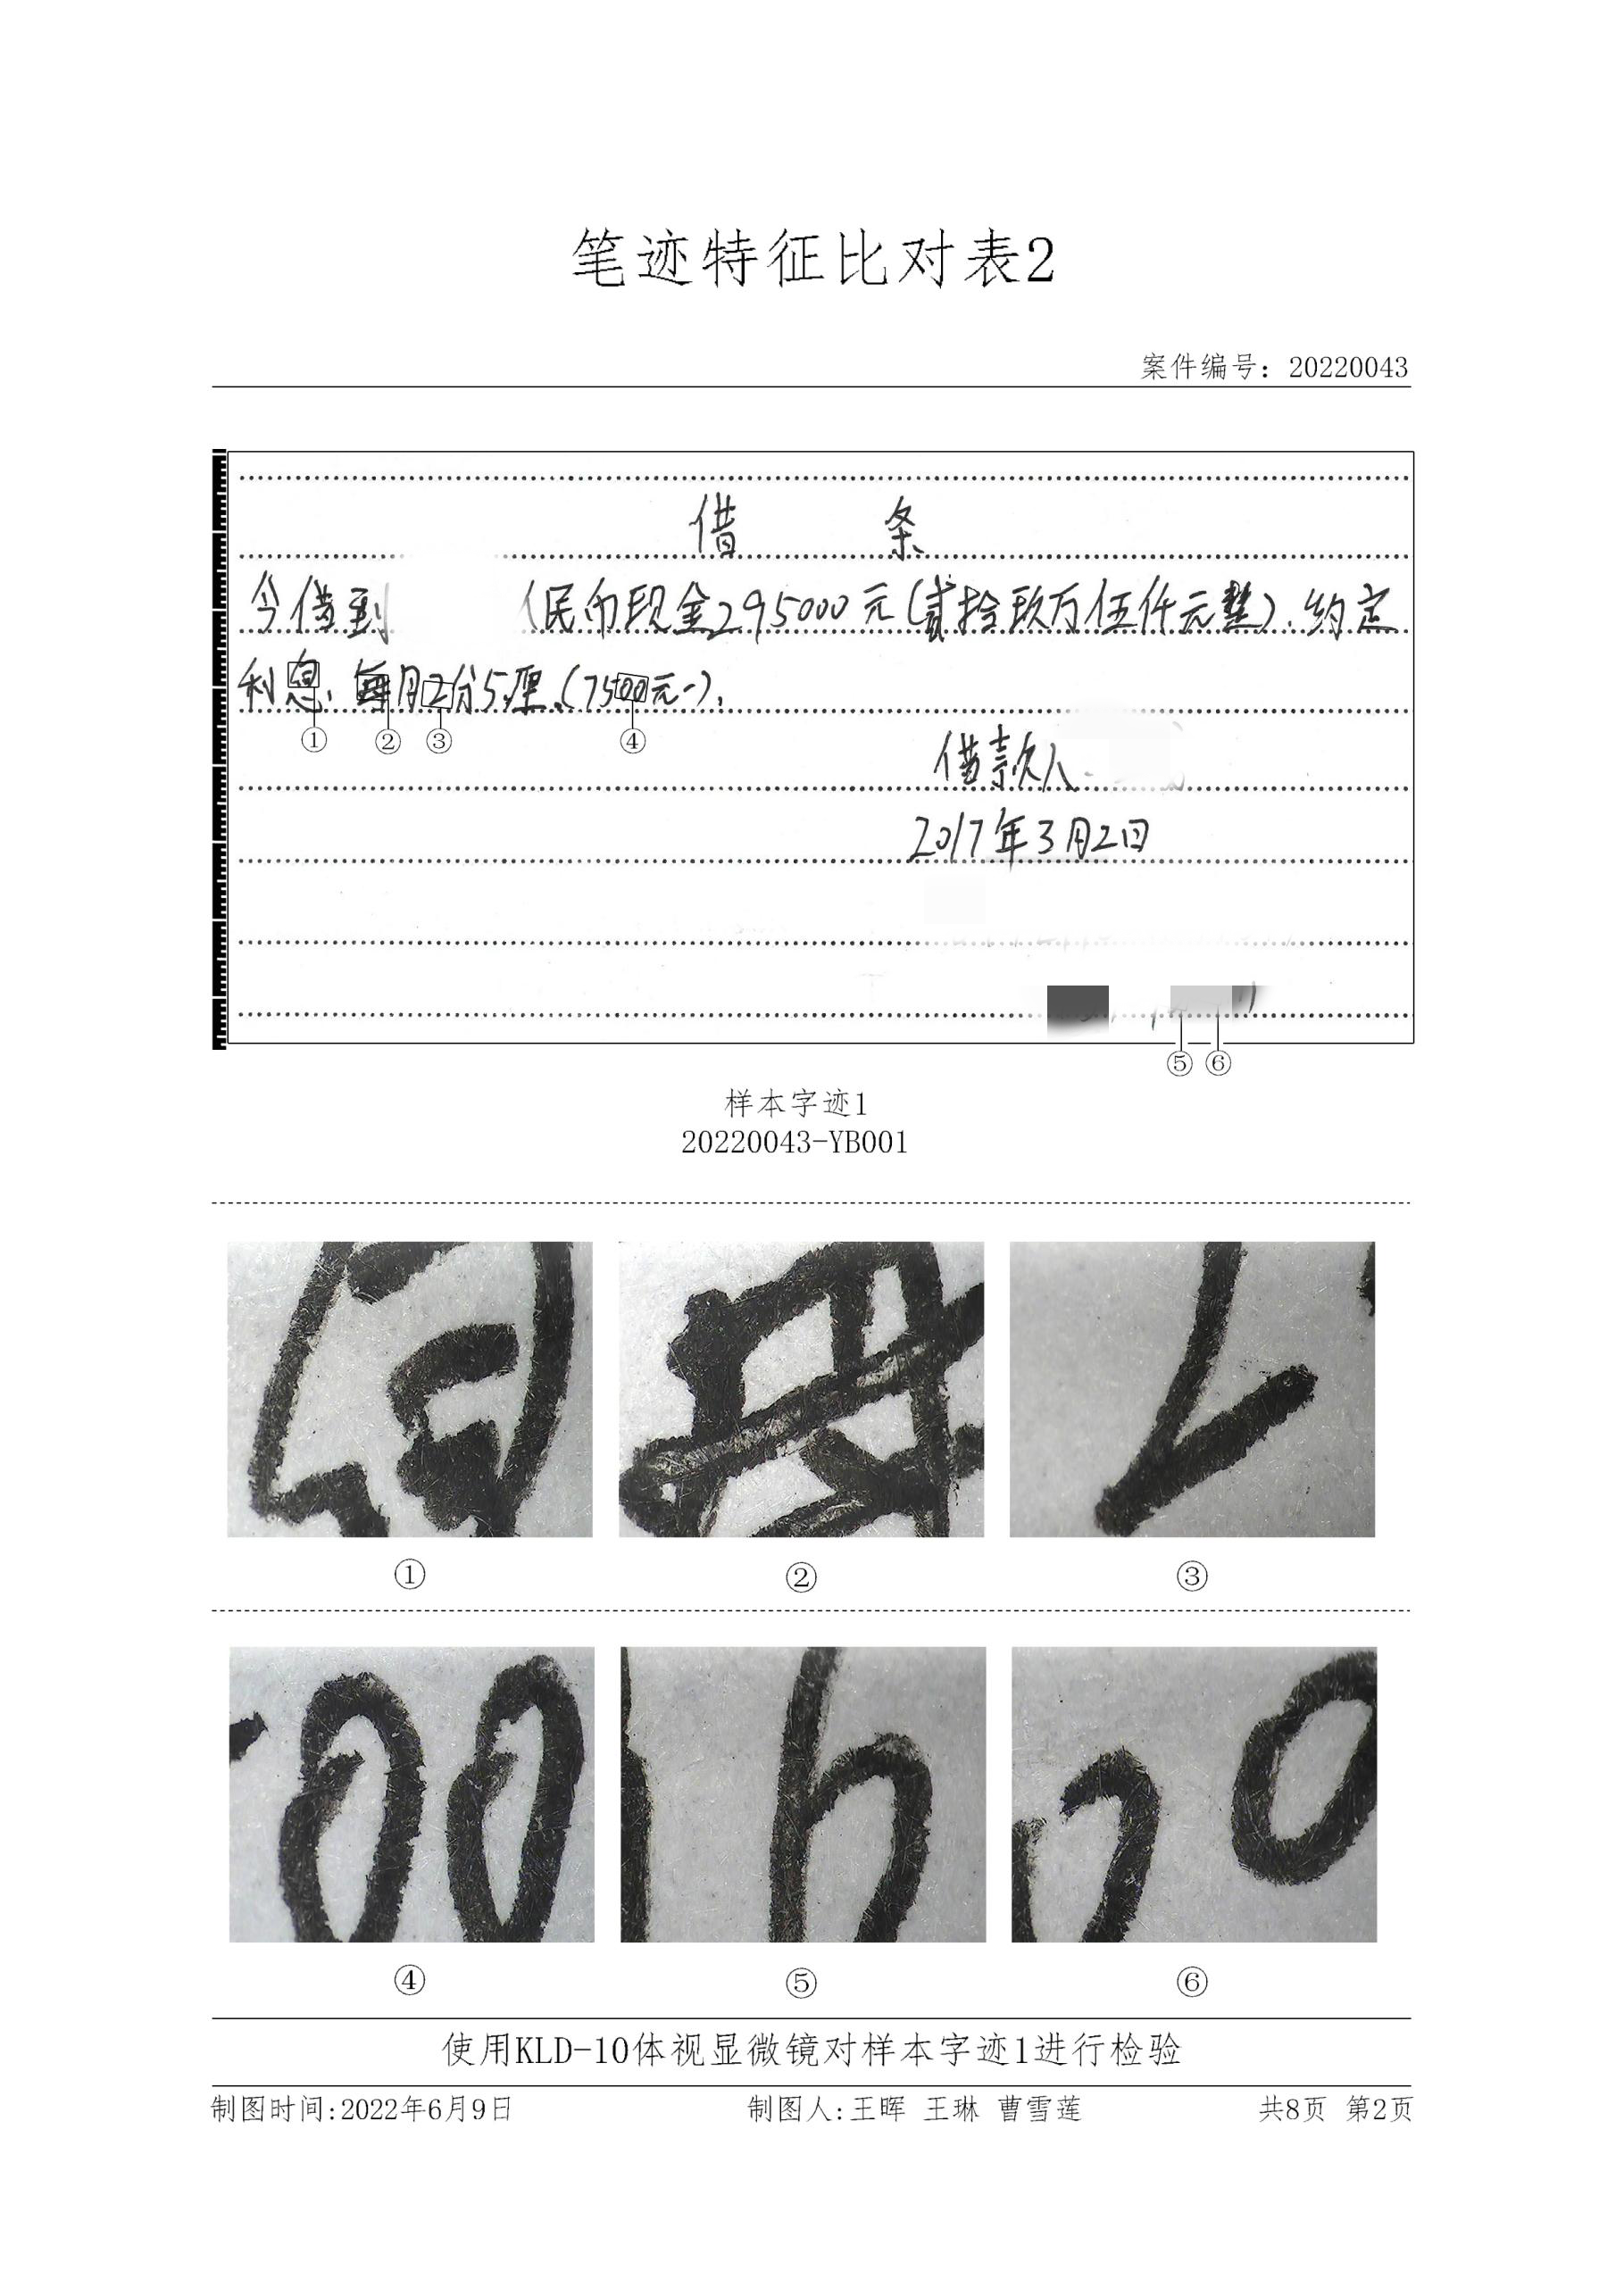 笔迹特征比对表2
案件编号：20220043
借 条
今借到 人民币现金295000元(贰拾玖万伍仟元整).约定
利息:每月2分5厘.(7500元-).
① ② ③ ④
借款人
2017年3月2日
⑤ ⑥
样本字迹1
20220043-YB001
① ② ③
④ ⑤ ⑥
使用KLD-10体视显微镜对样本字迹1进行检验
制图时间:2022年6月9日 制图人:王晖 王琳 曹雪莲 共8页 第2页